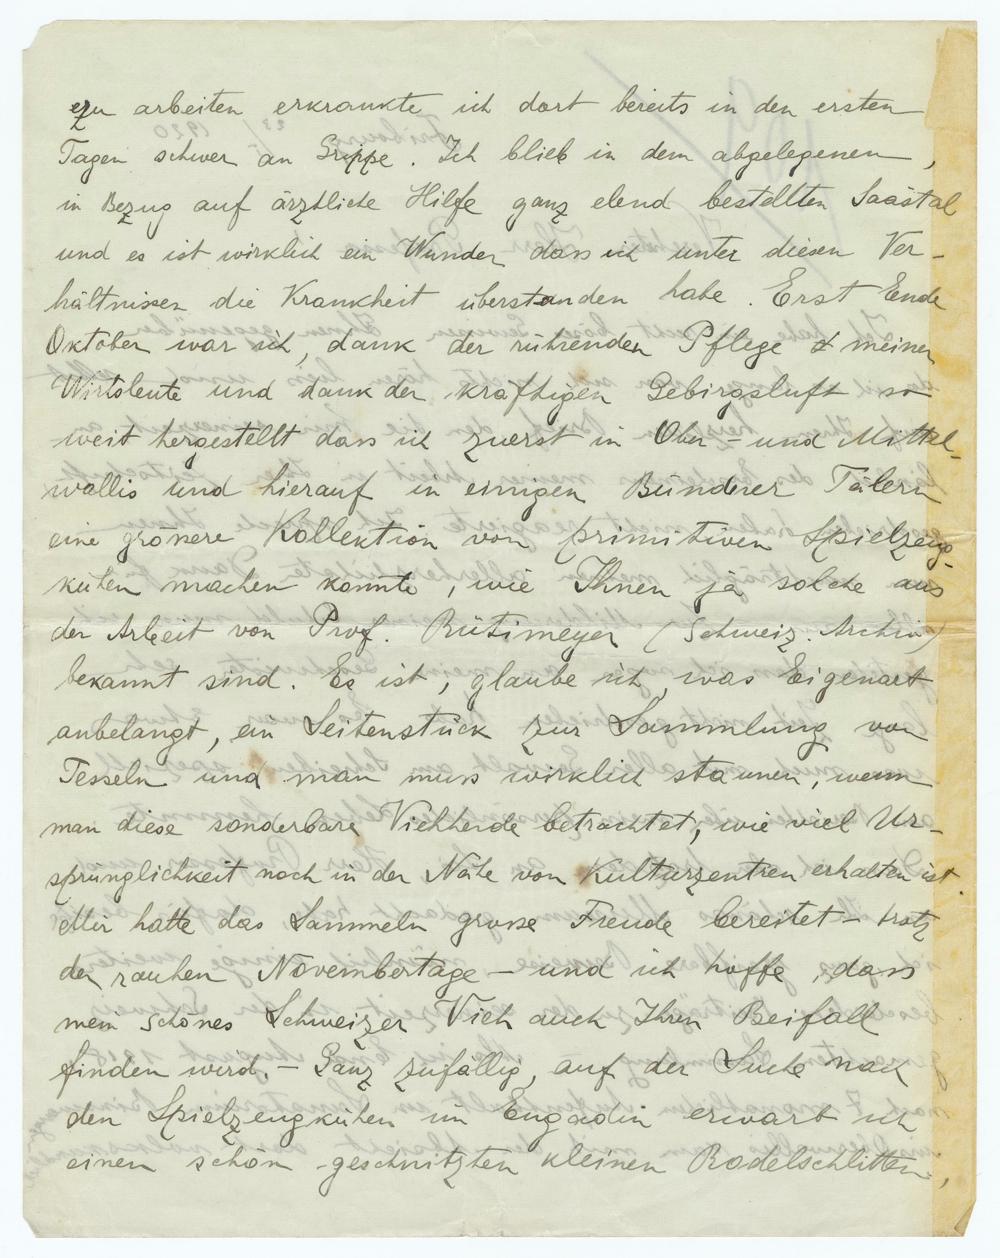 zu arbeiten erkrankte ich dort bereits in den ersten
Tagen schwer an Grippe. Ich blieb in dem abgelegenen,
in Bezug auf ärztliche Hilfe ganz elend bestellten Saastal
und es ist wirklich ein Wunder dass ich unter diesen Ver-
hältnissen die Krankheit überstanden habe. Erst Ende
Oktober war ich, dank der rührenden Pflege meiner
Wirtsleute und dank der kräftigen Gebirgsluft so
weit hergestellt dass ich zuerst in Ober- und Mittel-
wallis und hierauf in einigen Bündner Tälern
eine grössere Kollektion von primitiven Spielzeug-
kühen machen konnte, wie Ihnen ja solche aus
der Arbeit von Prof. Rütimeyer (Schweiz. Archiv)
bekannt sind. Es ist, glaube ich, was Eigenart
anbelangt, ein Seitenstück zur Sammlung von
Tesseln und man muss wirklich staunen, wenn
man diese sonderbare Viehherde betrachtet, wie viel Ur-
sprünglichkeit noch in der Nähe von Kulturzentren erhalten ist.
Mir hatte das Sammeln grosse Freude bereitet – trotz
der rauhen Novembertage – und ich hoffe, dass
mein schönes Schweizer Vieh auch Ihren Beifall
finden wird. – Ganz zufällig, auf der Suche nach
den Spielzeugkühen im Engadin erwarb ich
einen schön geschnitzten kleinen Rodelschlitten,